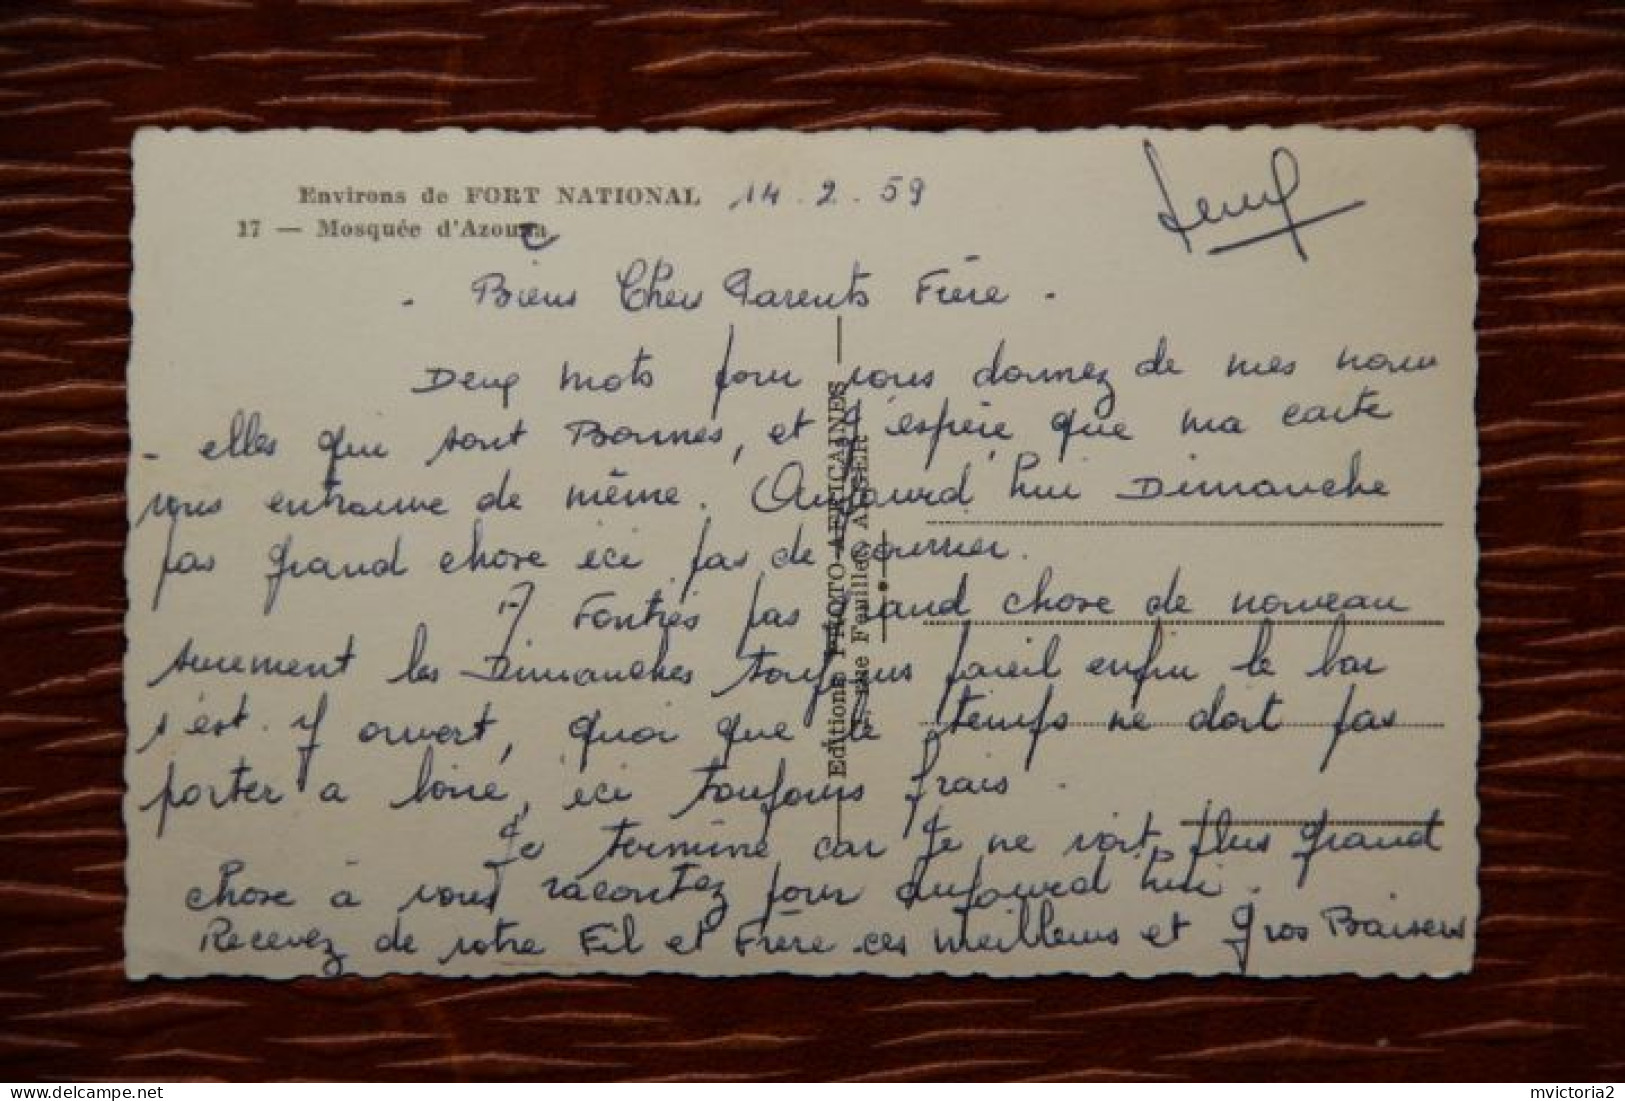 Environs de FORT NATIONAL 14.2.59
17 — Mosquée d'Azouza
- Biens Chers Parents Frère -
Deux mots pour vous donnez de mes nouv
- elles qui sont Bonnes, et j'espère que ma carte
vous entrouve de même. Aujourd'hui Dimanche
pas grand chose ici pas de courrier.
A Fontrés pas grand chose de nouveau
surement les Dimanches toujours pareil enfin le bar
s'est. y ouvert, quoi que le temps ne doit pas
porter a boire, ici toujours frais.
Je termine car Je ne voit plus grand
chose à vous racontez pour aujourd'hui.
Recevez de votre Fil et Frère ces meilleurs et Gros Baisers
Editions PHOTO-AFRICAINES
rue Feuillet ALGER
mvictoria2